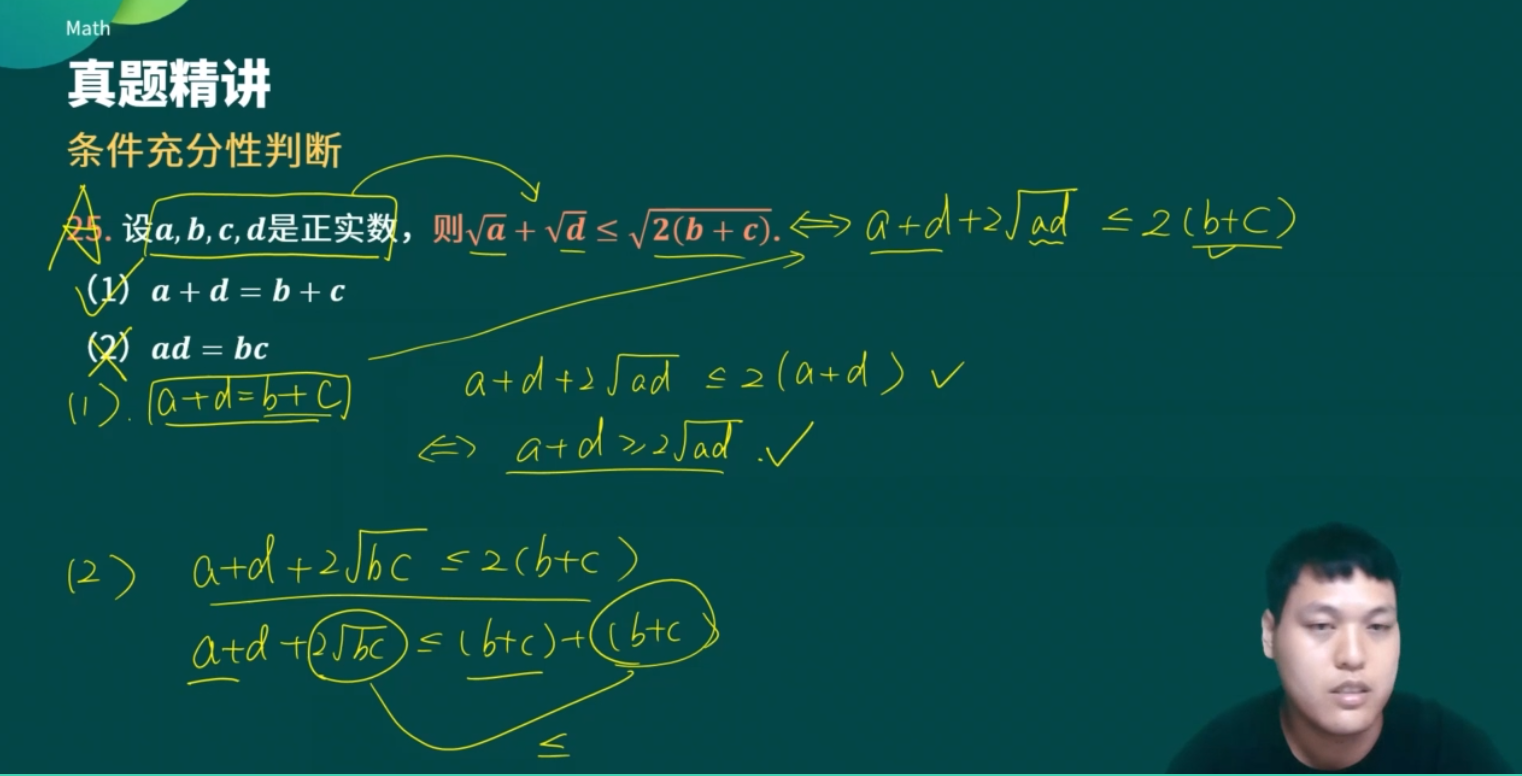 Math
真题精讲
条件充分性判断
A
25. 设a, b, c, d是正实数，则√a + √d ≤ √2(b + c). ⟺ a+d+2√ad ≤ 2(b+c)
(1) a + d = b + c
(2) ad = bc
(1). a+d=b+c
a+d+2√ad ≤ 2(a+d) ✓
⟺ a+d ≥ 2√ad . ✓
(2) a+d+2√bc ≤ 2(b+c)
a+d+2√bc ≤ (b+c)+(b+c)
≤